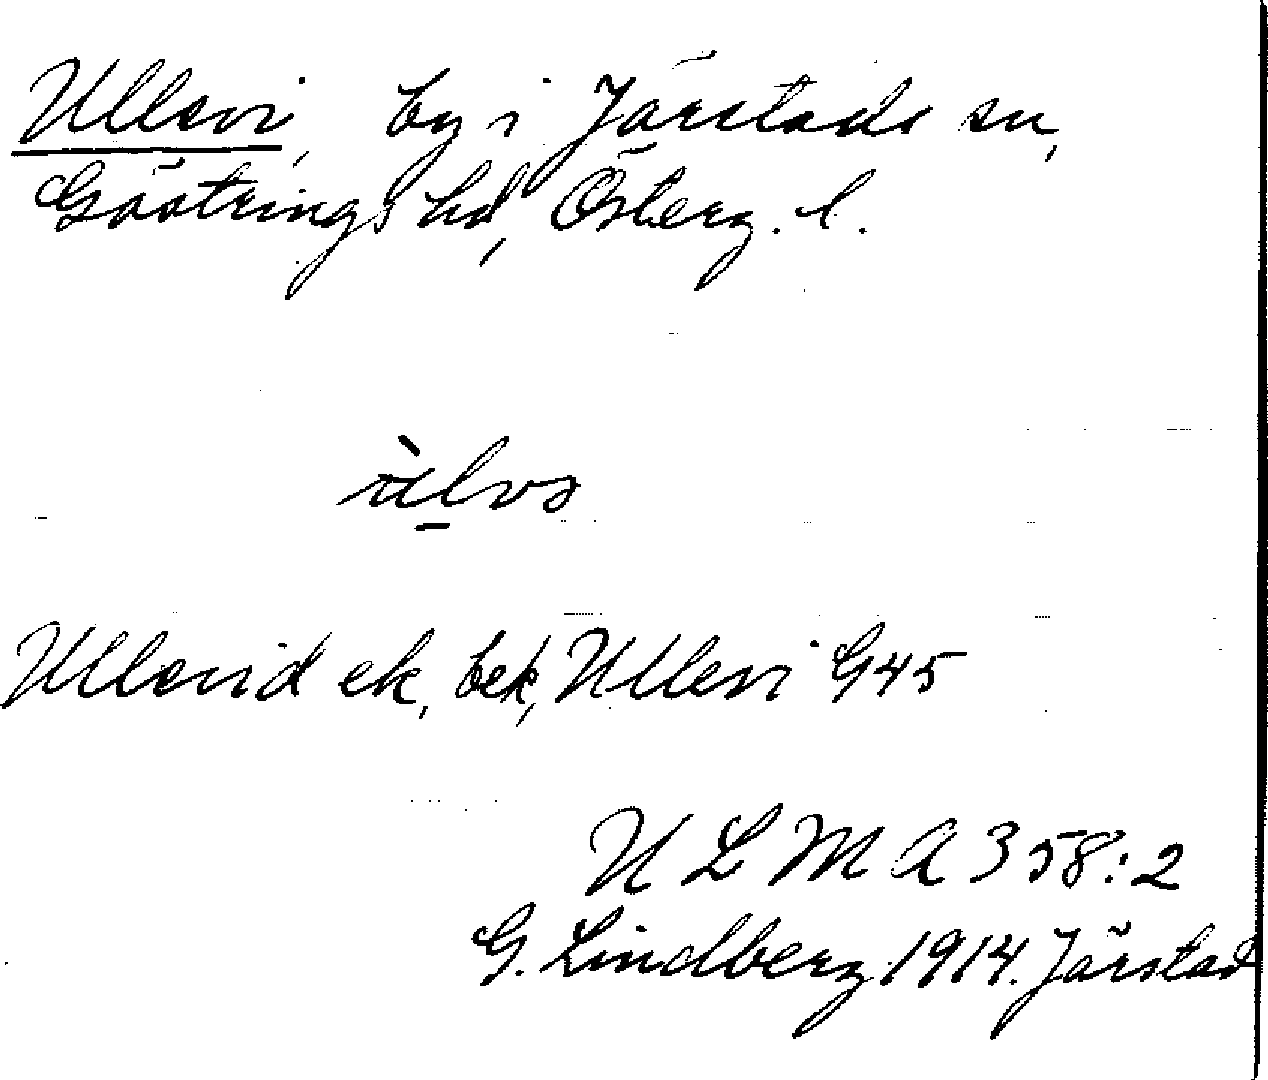 Ullevi, by i Järstads sn,
Göstrings hd, Österg. l.
ùlvs
Ullevid ek, bek, Ullevi G45
U L M A 358:2
G. Lindberg 1914. Järstad